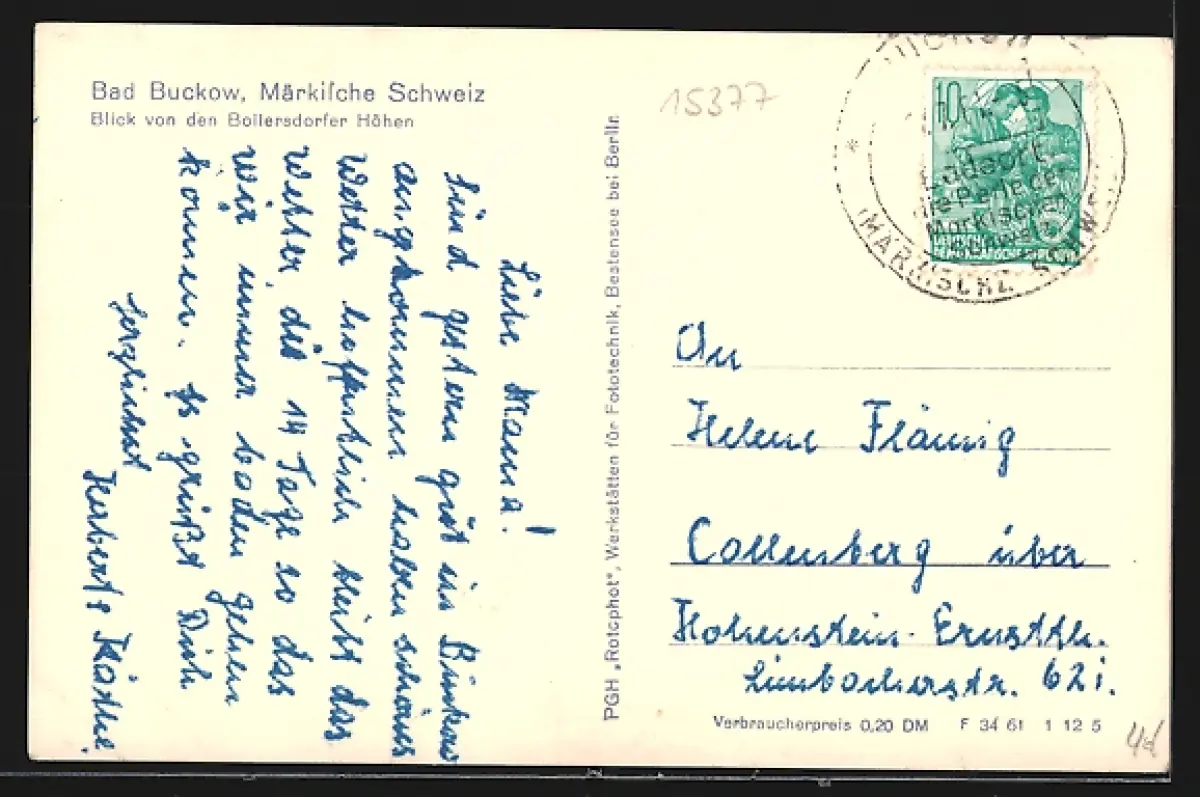 Bad Buckow, Märkiſche Schweiz
Blick von den Bollersdorfer Höhen
Liebe Mama!
Sind gestern gut in Buckow
angekommen haben schönes
Wetter hoffentlich bleibt das
Wetter die 14 Tage so das
wir immer baden gehen
können. Es grüßt Dich
herzlichst
Herbert & Käthe.
PGH „Rotophot", Werkstätten für Fototechnik, Bestensee bei Berlin
15377
BUCKOW
10
Badeort
die Perle der
Märkischen
Schweiz
(MÄRKISCHE SCHWEIZ)
An
Helene Flämig
Callenberg über
Hohenstein-Ernstth.
Limbacherstr. 62i.
Verbraucherpreis 0,20 DM F 34 61 1 12 5